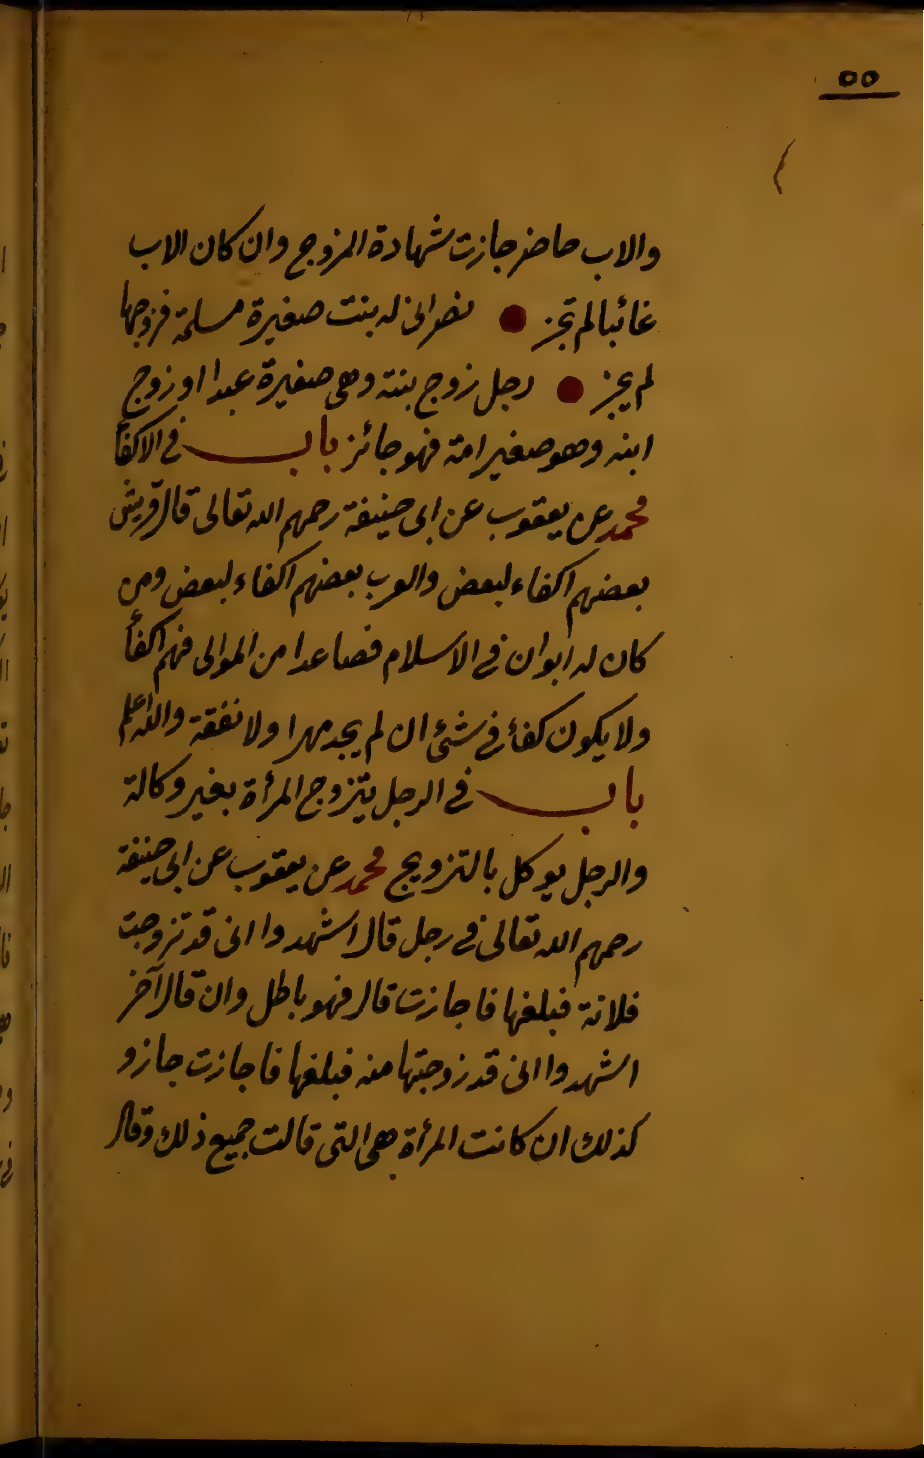 ٥٥
والاب حاضر جازت شهادة المزوج وان كان الاب
غائبا لم تجز ● نصرانى له بنت صغيرة مسلمة فزوجها
لم يجز ● رجل زوج بنته وهى صغيرة عبدا او زوج
ابنه وهو صغير امة فهو جائز باب فى الاكفأ
محمد عن يعقوب عن ابى حنيفة رحمهم الله تعالى قال قريش
بعضهم اكفاء لبعض والعرب بعضهم اكفاء لبعض ومن
كان له ابوان فى الاسلام فصاعدا من الموالى فهم اكفأ
ولا يكون كفأ فى شئ ان لم يجد مهرا ولا نفقة والله اعلم
باب فى الرجل يتزوج المرأة بغير وكالة
والرجل يوكل بالتزويج محمد عن يعقوب عن ابى حنيفة
رحمهم الله تعالى فى رجل قال اشهدوا انى قد تزوجت
فلانة فبلغها فاجازت قال فهو باطل وان قال آخر
اشهدوا انى قد زوجتها منه فبلغها فاجازت جاز و
كذلك ان كانت المرأة هى التى قالت جميع ذلك وقال